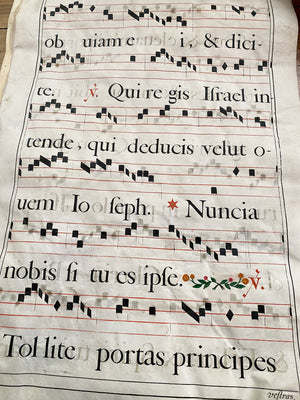 ob uiam e i, & dici-
te. ℣. Qui re gis Iſrael in
tende, qui deducis velut o-
uem Io ſeph. * Nuncia
nobis ſi tu es ipſe. ℣.
Tol lite portas principes
veſtras.